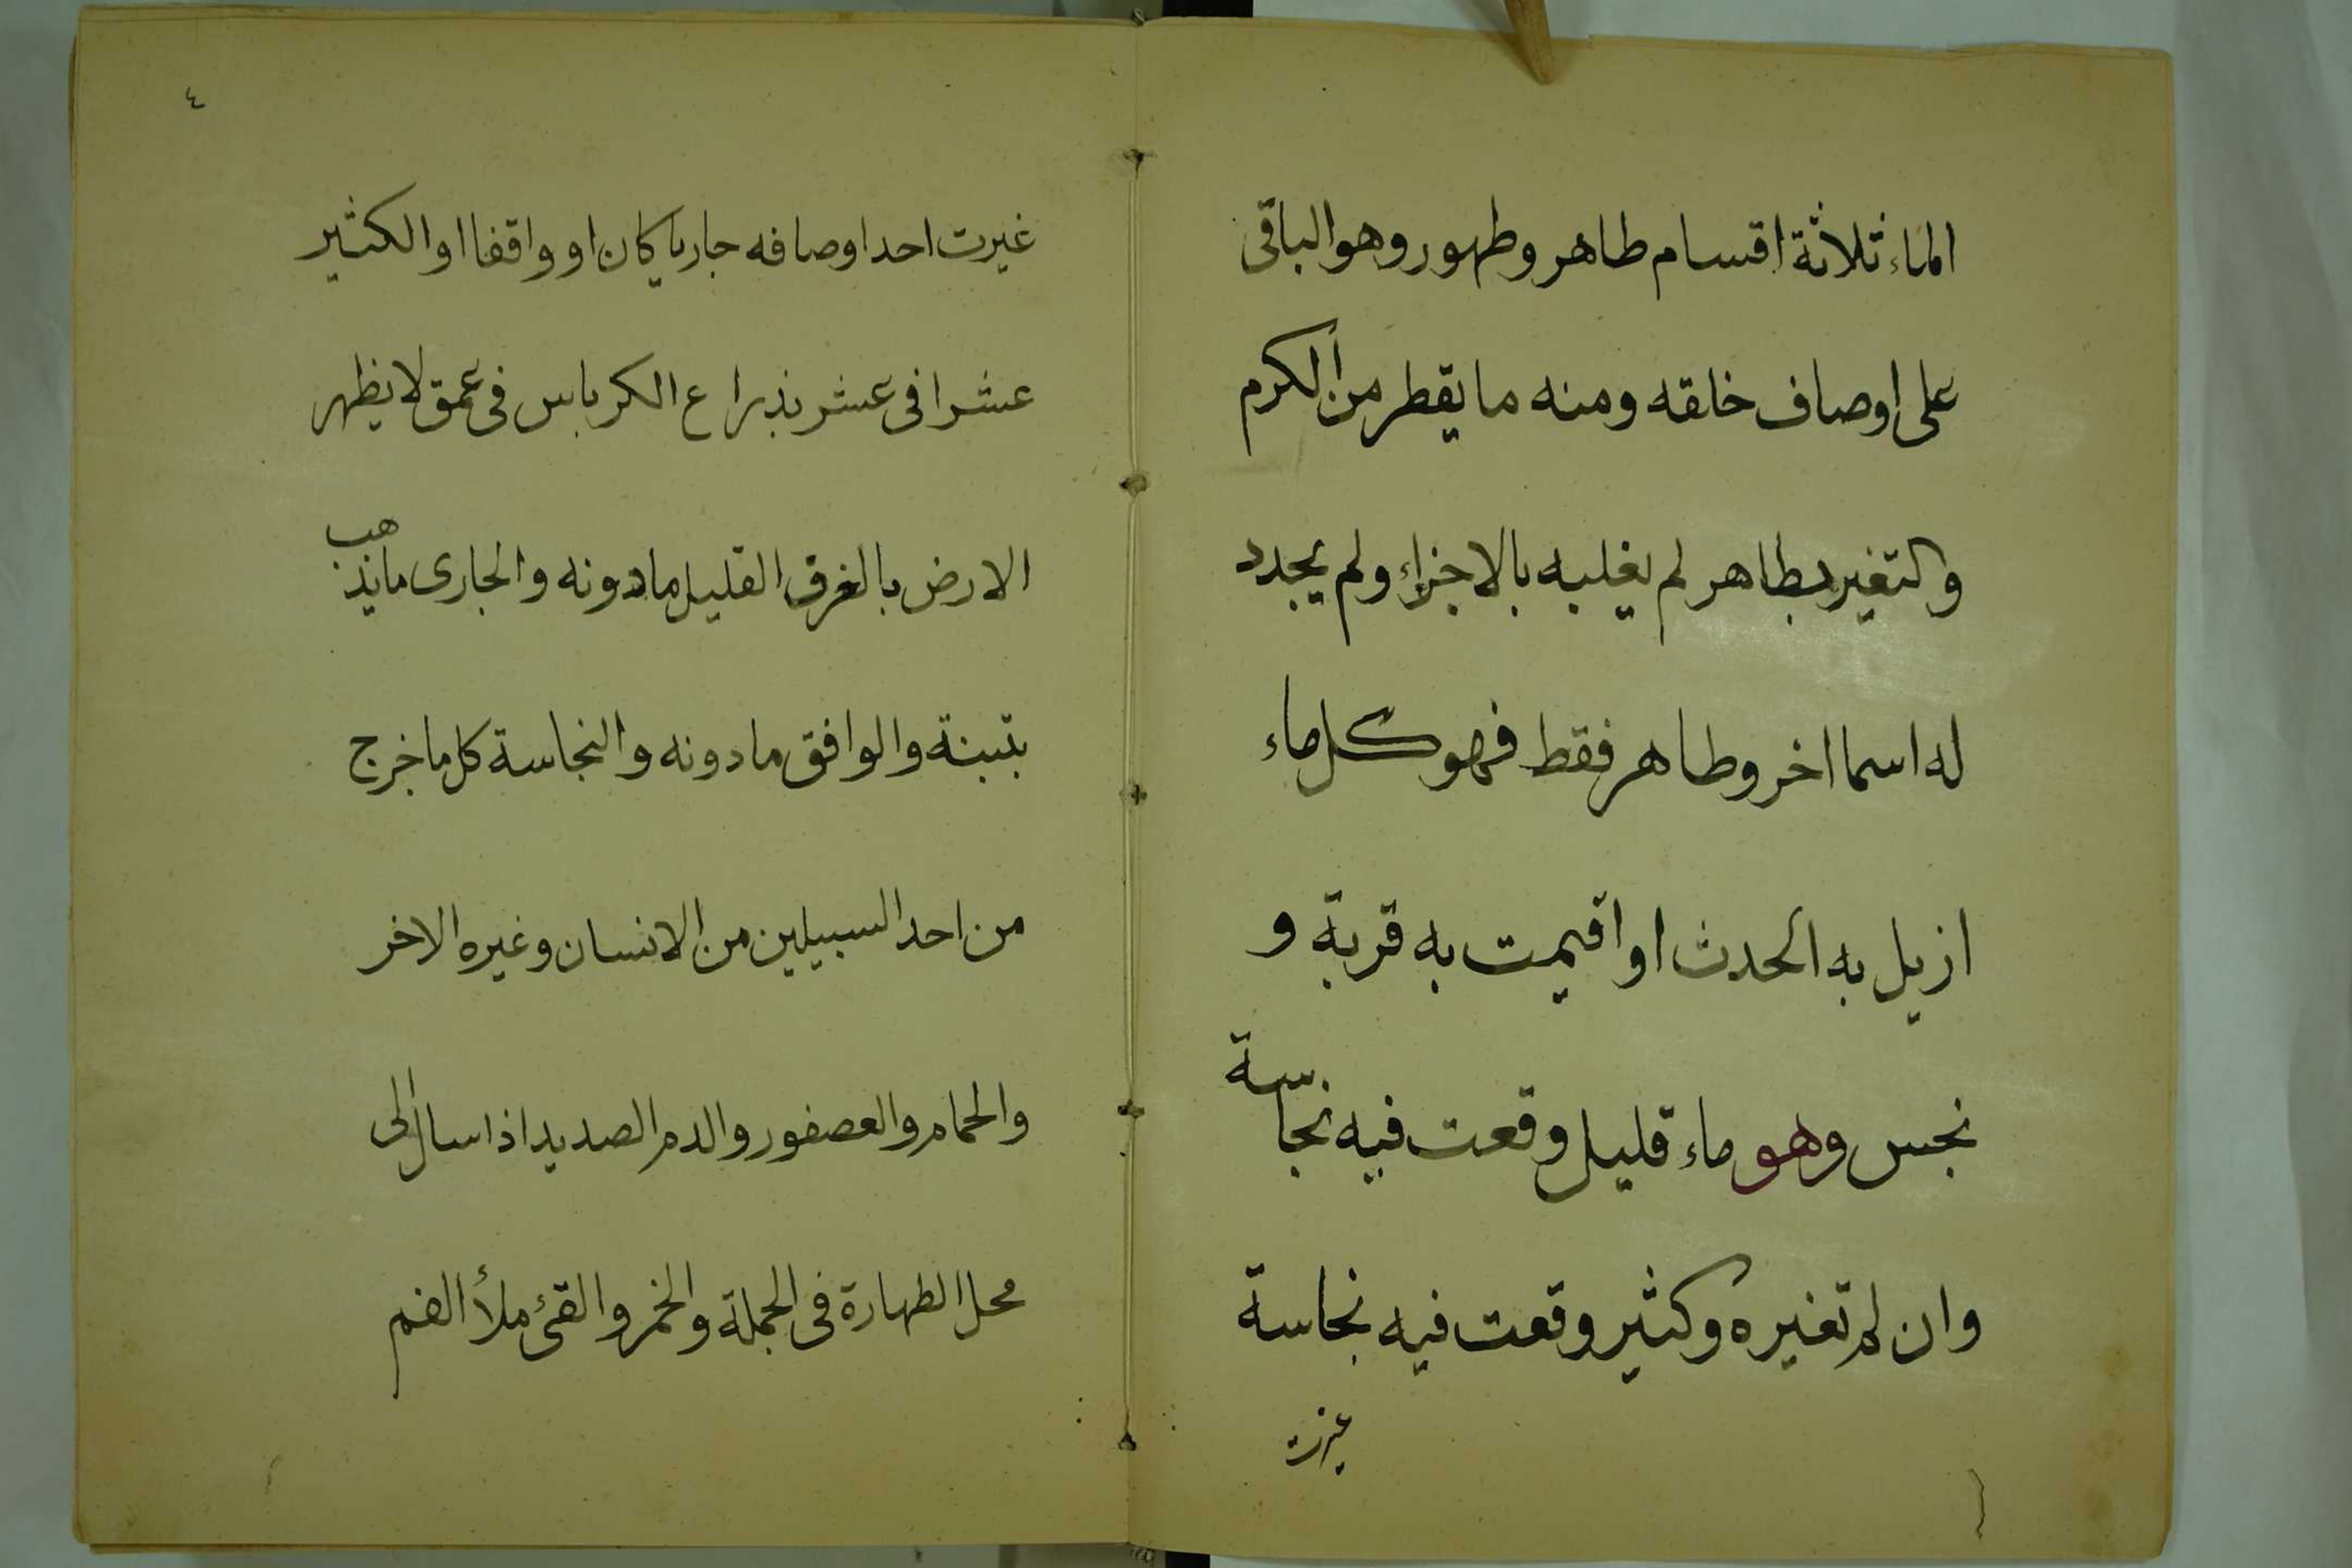 الماء ثلاثة اقسام طاهر وطهور وهو الباقى
على اوصاف خلقه ومنه ما يقطر من الكرم
والتغير بطاهر لم يغلبه بالاجزاء ولم يجدد
له اسما اخر وطاهر فقط فهو كل ماء
ازيل به الحدث او اقيمت به قربة و
نجس وهو ماء قليل وقعت فيه نجاسة
وان لم تغيره وكثير وقعت فيه نجاسة
غيرت
٤
غيرت احد اوصافه جاريا كان او واقفا او الكثير
عشرا فى عشر بذراع الكرباس فى عمق لا يظهر
الارض بالغرق القليل مادونه والجارى ما يذهب
بتبنة والوافق مادونه والنجاسة كل ما خرج
من احد السبيلين من الانسان وغيره الاخر
والحمام والعصفور والدم الصديد اذا سال الى
محل الطهارة فى الجملة والخمر والقئ ملأ الفم